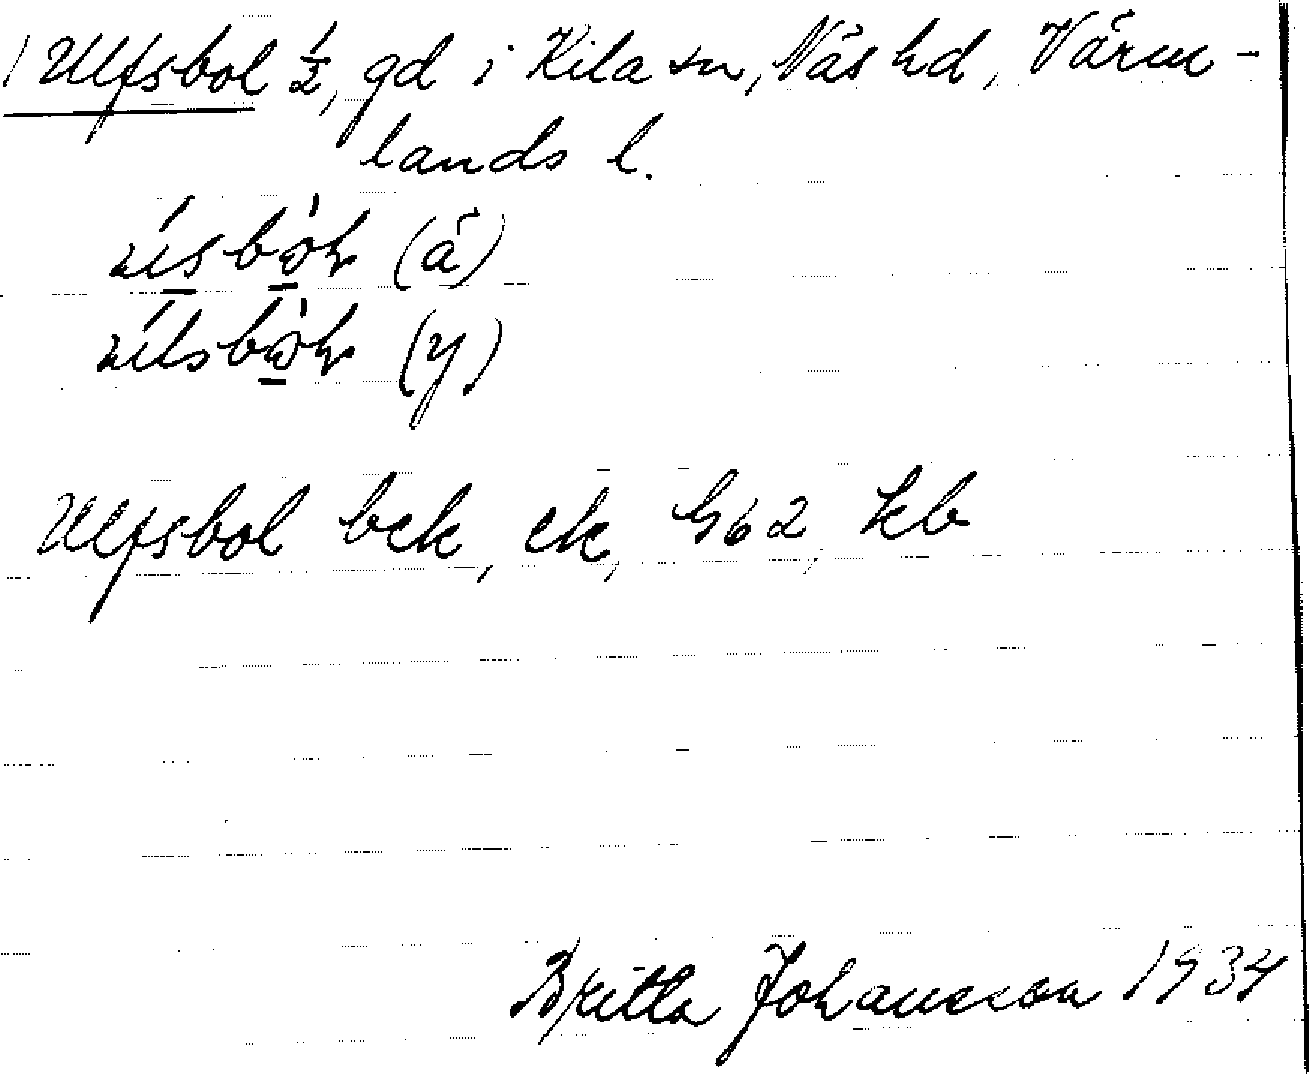 Ulfsbol 1/2, gd i Kila sn, Näs hd, Värm-
lands l.
(å)
(y)
Ulfsbol bek, ek, G62, kb
Britta Johansson 1934